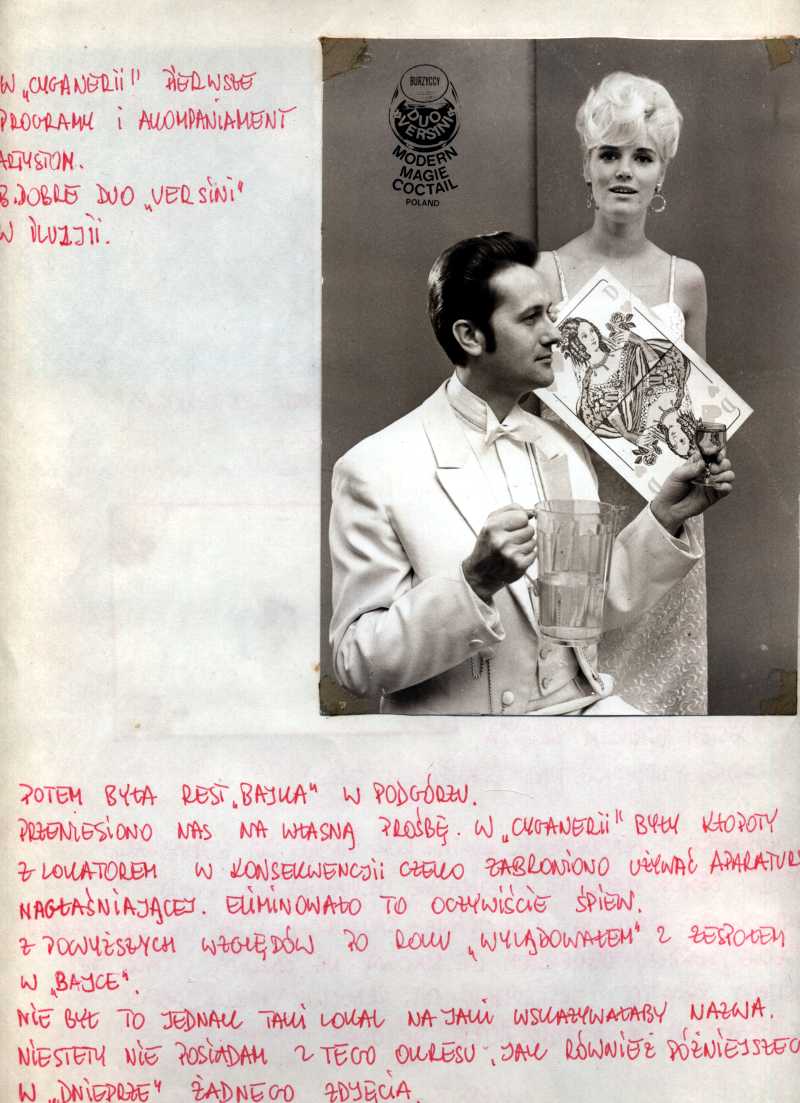 W „CYGANERII" PIERWSZE
PROGRAMY I AKOMPANIAMENT
ARTYSTOM.
B.DOBRE DUO „VERSINI"
W ILUZJII.
BURZYCCY
DUO
VERSINI
MODERN
MAGIE
COCTAIL
POLAND
D
D
POTEM BYŁA REST „BAJKA" W PODGÓRZU.
PRZENIESIONO NAS NA WŁASNĄ PROŚBĘ. W „CYGANERII" BYŁY KŁOPOTY
Z LOKATOREM W KONSEKWENCJII CZEGO ZABRONIONO UŻYWAĆ APARATURY
NAGŁAŚNIAJĄCEJ. ELIMINOWAŁO TO OCZYWIŚCIE ŚPIEW.
Z POWYŻSZYCH WZGLĘDÓW PO ROKU „WYLĄDOWAŁEM" Z ZESPOŁEM
W „BAJCE".
NIE BYŁ TO JEDNAK TAKI LOKAL NA JAKI WSKAZYWAŁABY NAZWA.
NIESTETY NIE POSIADAM Z TEGO OKRESU, JAK RÓWNIEŻ PÓŹNIEJSZEGO
W „DNIEPRZE" ŻADNEGO ZDJĘCIA.